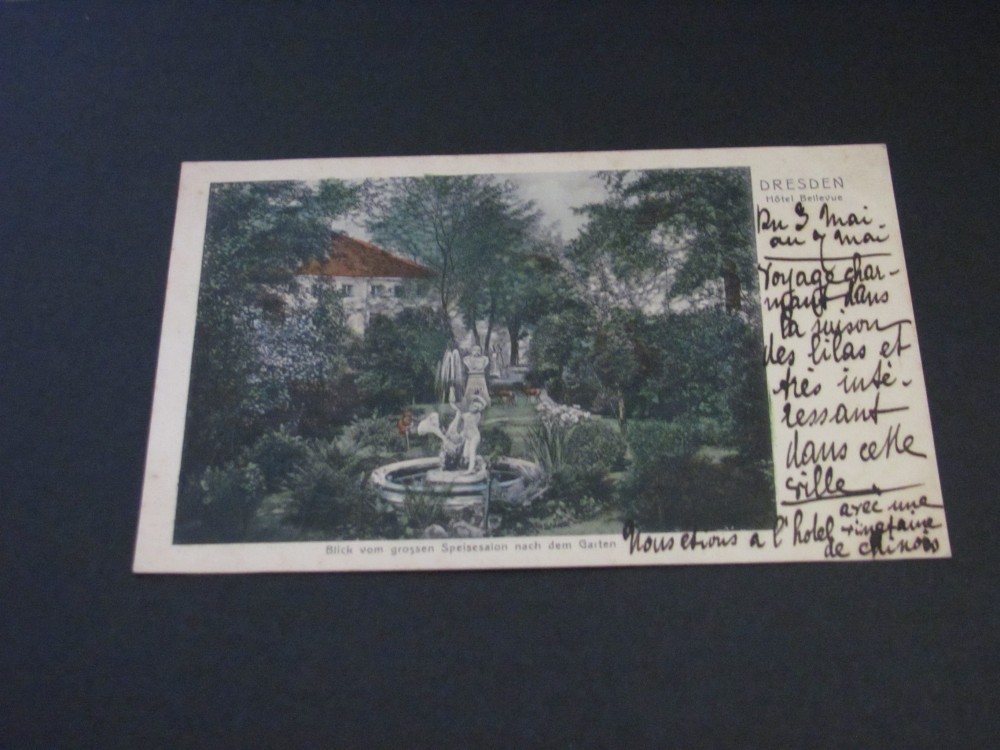 DRESDEN
Hôtel Bellevue
Du 3 Mai
au 7 mai
Voyage char-
mant dans
la saison
des lilas et
très inté-
ressant
dans cette
ville.
Nous etions a l'hotel avec une
vingtaine
de chinois
Blick vom grossen Speisesalon nach dem Garten